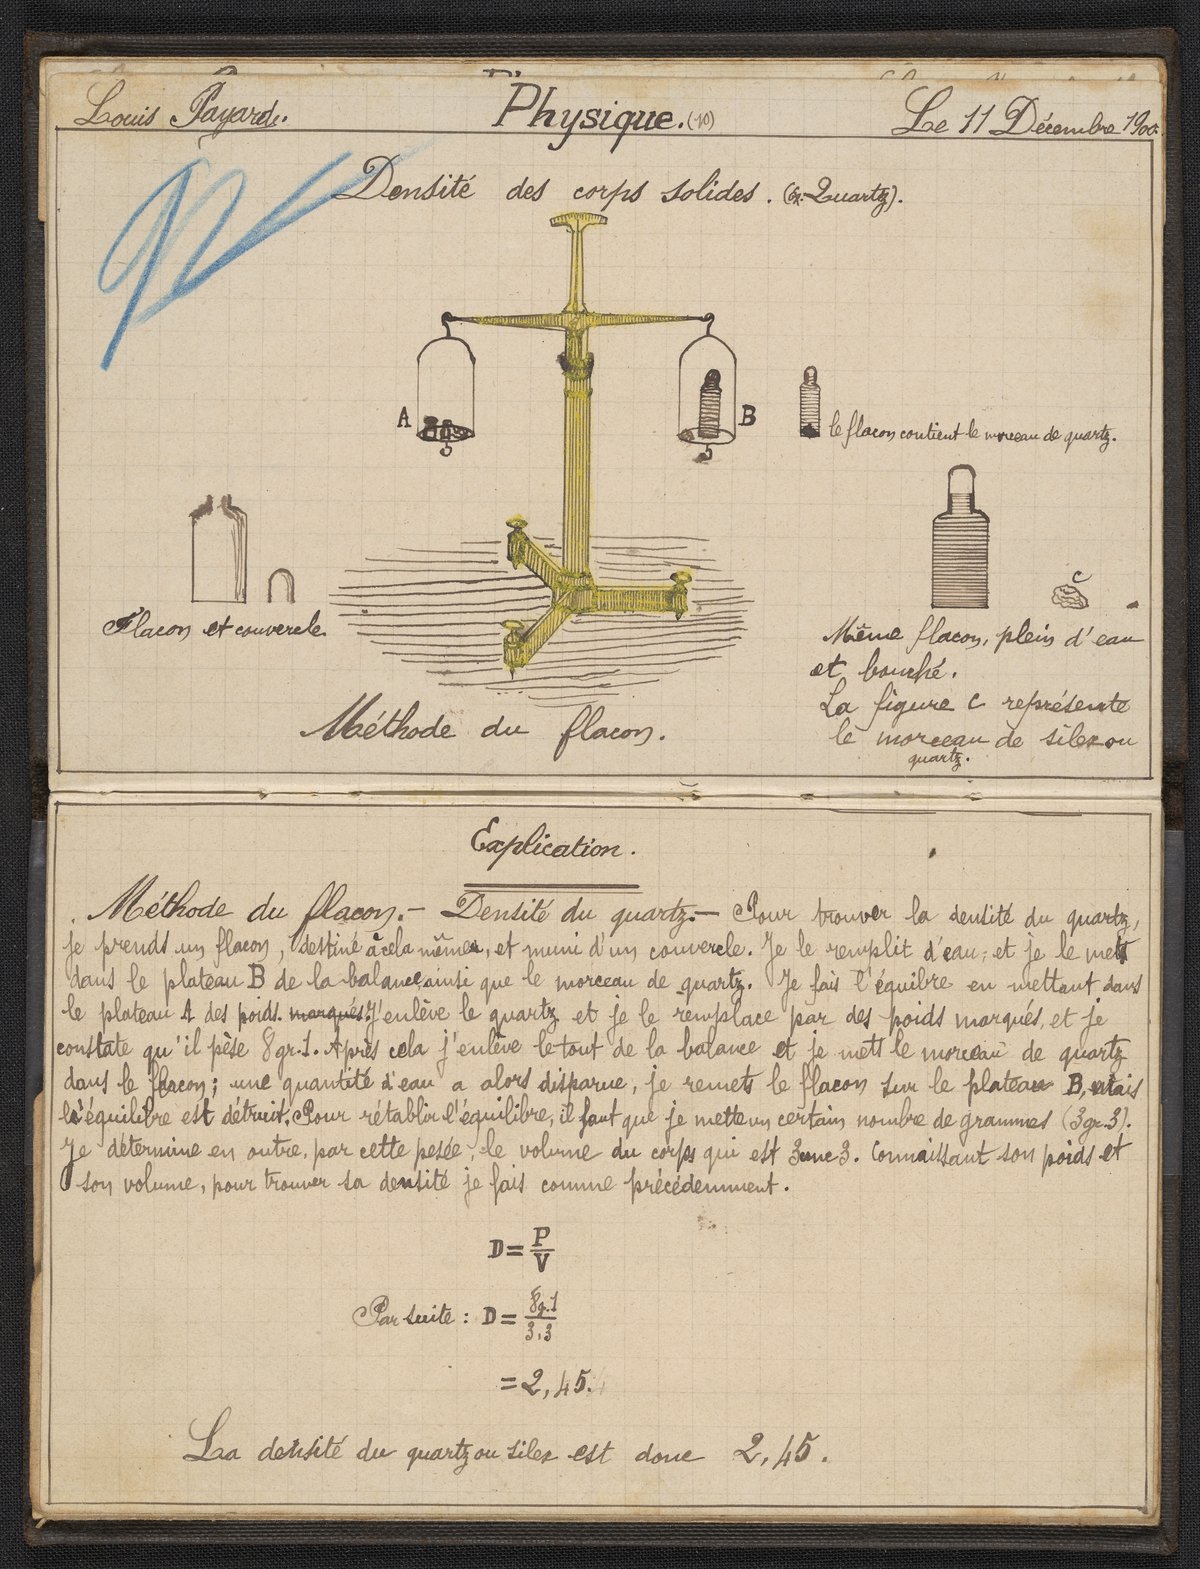 Louis Payard. Physique. (10) Le 11 Décembre 1900.
Densité des corps solides. (Ex. Quartz).
A
B
le flacon contient le morceau de quartz.
C
Flacon et couvercle
Même flacon, plein d'eau
et bouché.
La figure C représente
le morceau de silex ou
quartz.
Méthode du flacon.
Explication.
Méthode du flacon. — Densité du quartz. — Pour trouver la densité du quartz,
je prends un flacon, destiné à cela même, et muni d'un couvercle. Je le remplit d'eau, et je le mets
dans le plateau B de la balance, ainsi que le morceau de quartz. Je fais l'équilbre en mettant dans
le plateau A des poids. marqués. J'enlève le quartz et je le remplace par des poids marqués, et je
constate qu'il pèse 8gr.1. Après cela j'enlève le tout de la balance et je mets le morceau de quartz
dans le flacon; une quantité d'eau a alors disparue, je remets le flacon sur le plateau B, mais
l'équilibre est détruit. Pour rétablir l'équilibre, il faut que je mette un certain nombre de grammes (3gr.3).
Je détermine en outre, par cette pesée, le volume du corps qui est 3cmc3. Connaissant son poids et
son volume, pour trouver sa densité je fais comme précédemment.
D = P/V
Par suite : D = 8g.1/3,3
= 2,45.
La densité du quartz ou silex est donc 2,45.